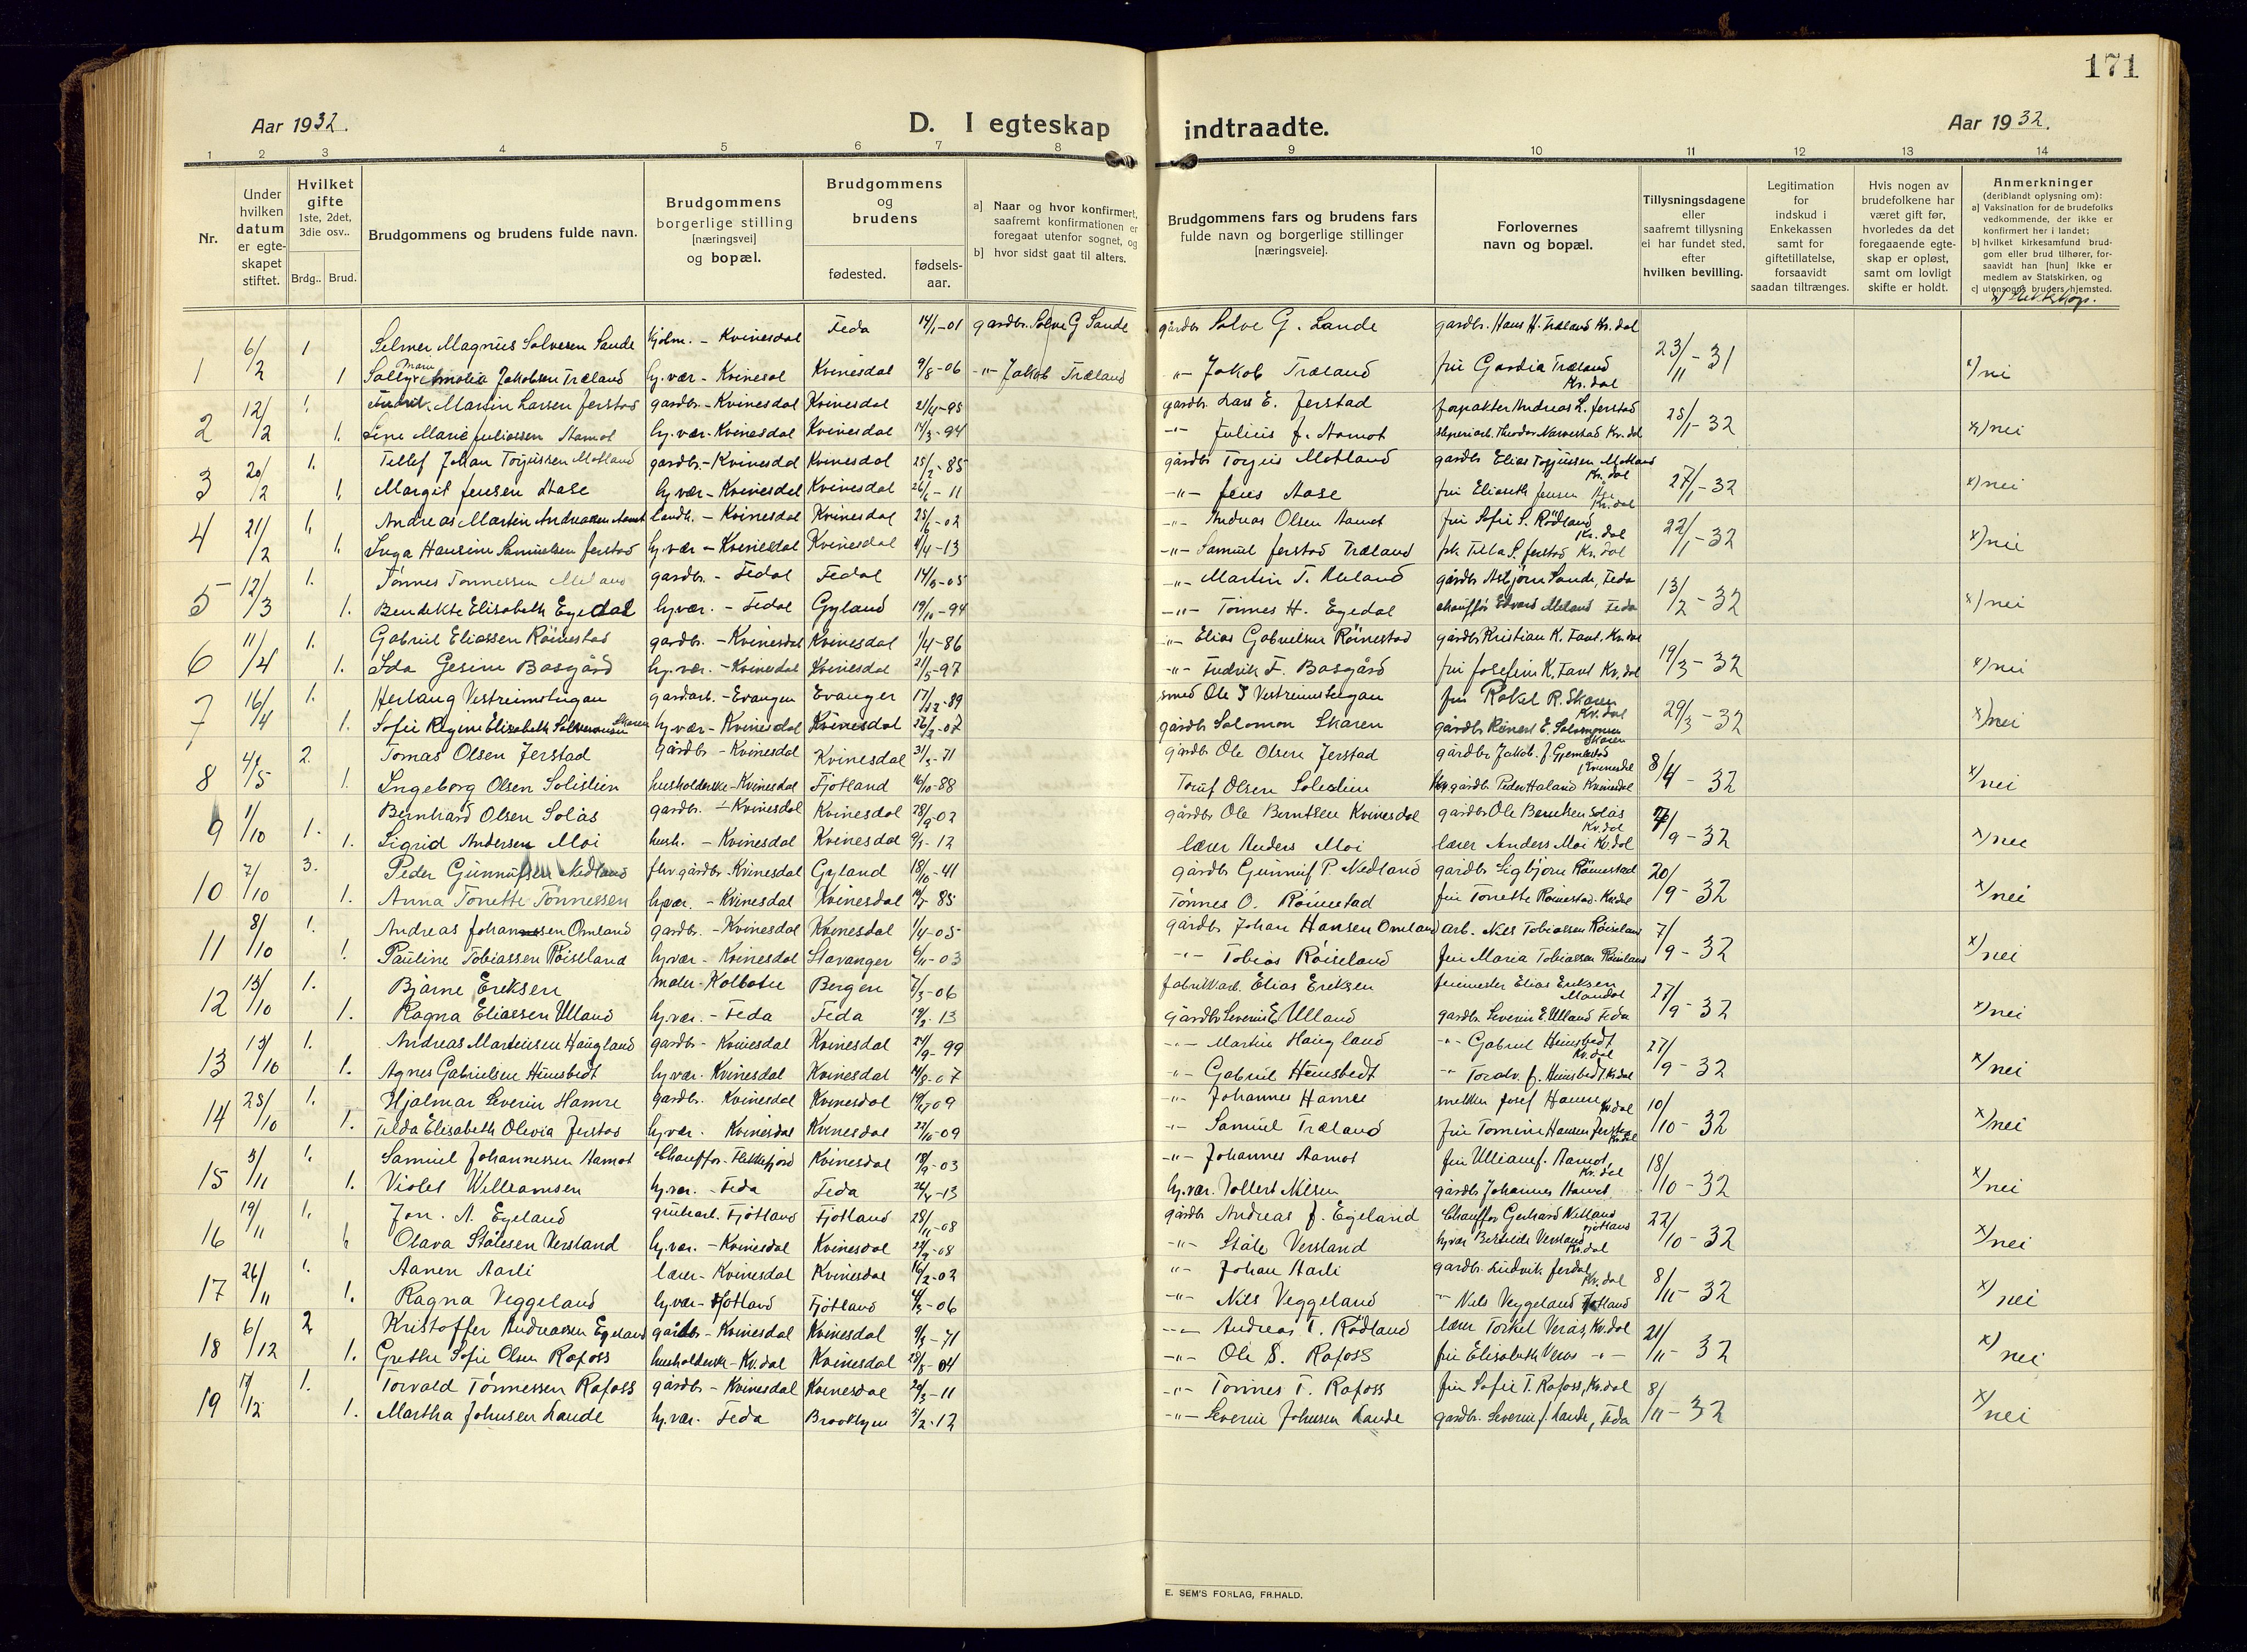 171
Aar 1932.
D. I egteskap indtraadte.
Aar 1932.
1 2 3 4 5 6 7 8 9 10 11 12 13 14
Nr.
Under hvilken datum er egteskapet stiftet.
Hvilket gifte 1ste, 2det, 3die osv..
Brdg.. Brud.
Brudgommens og brudens fulde navn.
Brudgommens borgerlige stilling [næringsvei] og bopæl.
Brudgommens og brudens
fødested.
fødselsaar.
a] Naar og hvor konfirmert, saafremt konfirmationen er foregaat utenfor sognet, og
b] hvor sidst gaat til alters.
Brudgommens fars og brudens fars fulde navn og borgerlige stillinger [næringsveie].
Forlovernes navn og bopæl.
Tillysningsdagene eller saafremt tillysning ei har fundet sted, efter hvilken bevilling.
Legitimation for indskud i Enkekassen samt for giftetillatelse, forsaavidt saadan tiltrænges.
Hvis nogen av brudefolkene har været gift før, hvorledes da det foregaaende egteskap er opløst, samt om lovligt skifte er holdt.
Anmerkninger (deriblandt oplysning om):
a] Vaksination for de brudefolks vedkommende, der ikke er konfirmert her i landet;
b] hvilket kirkesamfund brudgom eller brud tilhører, forsaavidt han [hun] ikke er medlem av Statskirken, og
c] utensogns bruders hjemsted.
1 6/2 1 Selmer Magnus Solvesen Sande Kvinesdal Feda 14/1-01 gardbr. Solve G Sande gårdbr Solve G. Sande gardbr. Hans H. Træland Kv.dal 23/11-31
1 Marie Amalia Jakobsen Træland hj.vær - Kvinesdal Kvinesdal 9/8-06 -"- Jakob Træland -"- Jakob Træland fru Gardia Træland Kv.dal x) nei
2 12/2 1. Martin Larsen Jerstad gardbr. - Kvinesdal Kvinesdal 21/4-95 gardbr. Lars E. Jerstad forpakter Andreas L. Jerstad 25/1-32
1. Line Marie Juliassen Aamot hj.vær - Kvinesdal Kvinesdal 14/3-94 -"- Julius J. Aamot Theodor Narvestad Kv.dal x) nei
3 20/2 1. Tellef Johan Torjussen Motland gardbr. - Kvinesdal Kvinesdal 25/2-85 gårdbr Torjus Motland gardbr Elias Torjussen Motland Kv.dal 27/1-32
1. Margit Jensen Aase hj.vær - Kvinesdal Kvinesdal 26/6-11 -"- Jens Aase fru Elisabeth Jensen Åse Kv.dal x) nei
4 21/2 1. Andreas Martin Andreassen Aamot landbr. - Kvinesdal Kvinesdal 25/6-02 -"- Andreas Olsen Aamot fru Sofie S. Rödland Kv.dal 22/1-32
1. Inga Hansine Samuelsen Jerstad hj.vær - Kvinesdal Kvinesdal 8/4-13 -"- Samuel Jerstad Træland frk Tilla S. Jerstad Kv.dal x) nei
5 12/3 1. Tönnes Tonnessen Meland gardbr. - Fedal Fedal 14/3-05 -"- Martin T. Meland gårdbr Asbjørn Sande, Feda 13/2-32
1. Bendikte Elisabeth Egedal hj.vær. - Fedal Gyland 19/10-94 -"- Tönnes H. Egedal chauffør Edvard Meland Feda x) nei
6 11/4 1. Gabriel Eliassen Röinestad gardbr. - Kvinesdal Kvinesdal 1/4-86 -"- Elias Gabrielsen Röinestad gårdbr Kristian K. Tamt. Kv.dal 19/3-32
1. Ida Gesine Basgård hj.vær. - Kvinesdal Kvinesdal 21/5-97 -"- Fredrik F. Basgård fru Josefine K. Tamt Kv.dal x) nei
7 16/4 1. Herlaug Vestreimstugan gardarb. - Evanger Evanger 17/12-89 smed Ole J Vestreimstugan fru Rakel R. Skaren Kv.dal 29/3-32
1. Sofie Regine Elisabeth Skaren hj.vær - Kvinesdal Kvinesdal 26/2-07 gårdbr Salomon Skaren gårdbr Reinert E. Salomonsen Skaren x) nei
8 4/5 2. Tomas Olsen Jerstad gårdbr - Kvinesdal Kvinesdal 31/3-71 gårdbr Ole Olsen Jerstad gårdbr Jakob. J. Gjemlestad Kvinesdal 8/4-32
1. Ingeborg Olsen Solislien husholderske - Kvinesdal Fjotland 16/10-88 Toruf Olsen Solislien gårdbr Peder Haland Kvinesdal x) nei
9 1/10 1. Bernhard Olsen Solås gardbr. - Kvinesdal Kvinesdal 28/9-02 gårdbr Ole Berntsen Kvinesdal gardbr Ole Berntsen Solås Kv.dal 7/9-32
1. Sigrid Andersen Moi hush. - Kvinesdal Kvinesdal 9/1-12 lærer Anders Moi lærer Anders Moi Kv.dal x) nei
10 7/10 3. Peder Gunnufsen Nedland fhv gårdbr - Kvinesdal Gyland 18/10-41 gårdbr Gunnuf P. Nedland gardbr Sigbjørn Röinestad 20/9-32
1. Anna Tonette Tönnessen hj.vær. - Kvinesdal Kvinesdal 85 Tönnes O. Röinestad fru Tonette Röinestad. Kv.dal x) nei
11 8/10 1. Andreas Johansen Omland gardbr. - Kvinesdal Kvinesdal 1/4-05 gårdbr Johan Hansen Omland arb. Nils Tobiassen Röiseland 7/9-32
1. Pauline Tobiassen Röiseland hj.vær - Kvinesdal Stavanger 6/11-03 -"- Tobias Röiseland fru Maria Tobiassen Röiseland x) nei
12 13/10 1. Bjarne Eriksen maler - Kolbotn Bergen 7/3-06 fabrikkarb. Elias Eriksen Elias Eriksen Mandal 27/9-32
1. Ragna Eliassen Ulland hj.vær. - Feda Feda 19/3-13 gårdbr Severin E Ulland gardbr. Severin E Ulland Feda x) nei
13 13/10 1. Andreas Martinsen Haugland gardbr - Kvinesdal Kvinesdal 24/9-99 -"- Martin Haugland -"- Gabriel Himsbedt Kv.dal 27/9-32
1. Agnes Gabrielsen Himsbedt hj.vær. Kvinesdal Kvinesdal 14/8-07 -"- Gabriel Himsbedt -"- Toralv. J. Himsbedt Kv.dal x) nei
14 25/10 1. Hjalmar Severin Hamre gardbr. Kvinesdal Kvinesdal 09 -"- Johannes Hamre snekker Josef Hamre Kv.dal 10/10-32
1. Telda Elisabeth Olivia Jerstad hj.vær. Kvinesdal Kvinesdal 22/10-09 -"- Samuel Træland fru Tomine Hansen Jerstad Kv.dal x) nei
15 5/11 1. Samuel Johannessen Aamot Chauffør - Flekkefjord Kvinesdal 03 -"- Johannes Aamot fru Aamot, Kv.dal 18/10-32
1. Violet Williamsen hj.vær. - Feda Feda 26/4-13 hj.vær. Vollert Nilsen gårdbr Johannes Aamot. x) nei
16 19/11 1. Jon. A. Egeland grubearb. Fjotland Fjotland 28/11-08 gårdbr Andreas J. Egeland Chauffør Gerhard Netland Fjotland 22/10-32
1. Olava Stålesen Versland hj.vær. - Kvinesdal Kvinesdal 08 -"- Ståle Versland hj.vær Versland Kv.dal x) nei
17 26/11 1. Aanen Aarli lærer - Kvinesdal Kvinesdal 16/2-02 -"- Johan Aarli gardbr. Ludvik Jerdal Kv.dal 8/11-32
1. Ragna Veggeland hj.vær - Fjotland Fjotland 4/3-06 -"- Nils Veggeland -"- Nils Veggeland Fjotland x) nei
18 6/12 2 Kristoffer Andreassen Egeland gårdbr - Kvinesdal Kvinesdal 9/3-71 -"- Andreas T. Rödland lærer Torkel Verås, Kv.dal 21/11-32
1. Grethe Sofie Olsen Rafoss husholderske - Kv.dal Kvinesdal 04 -"- Ole S. Rafoss fru Elisabeth Verås -"- x) nei
19 12 1. Torvald Tönnessen Rafoss gårdbr - Kvinesdal Kvinesdal 24/3-11 -"- Tönnes T. Rafoss fru Sofie T. Rafoss, Kv.dal 8/11-32
1. Martha Johnsen Lande hj.vær. Feda Brooklyn 5/2-12 -"- Severin Johnsen Lande gardbr. Severin J. Lande, Feda x) nei
E. SEM'S FORLAG, FR.HALD.